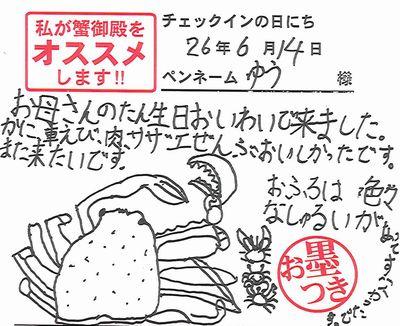 私が蟹御殿を
オススメ
します!!
チェックインの日にち
26年6月14日
ペンネーム ゆう 様
お母さんのたん生日おいわいで来ました。
がに、車えび、肉、サザエぜんぶおいしかったです。
また来たいです。
おふろは色々
なしゅるいが
あって
お墨つき